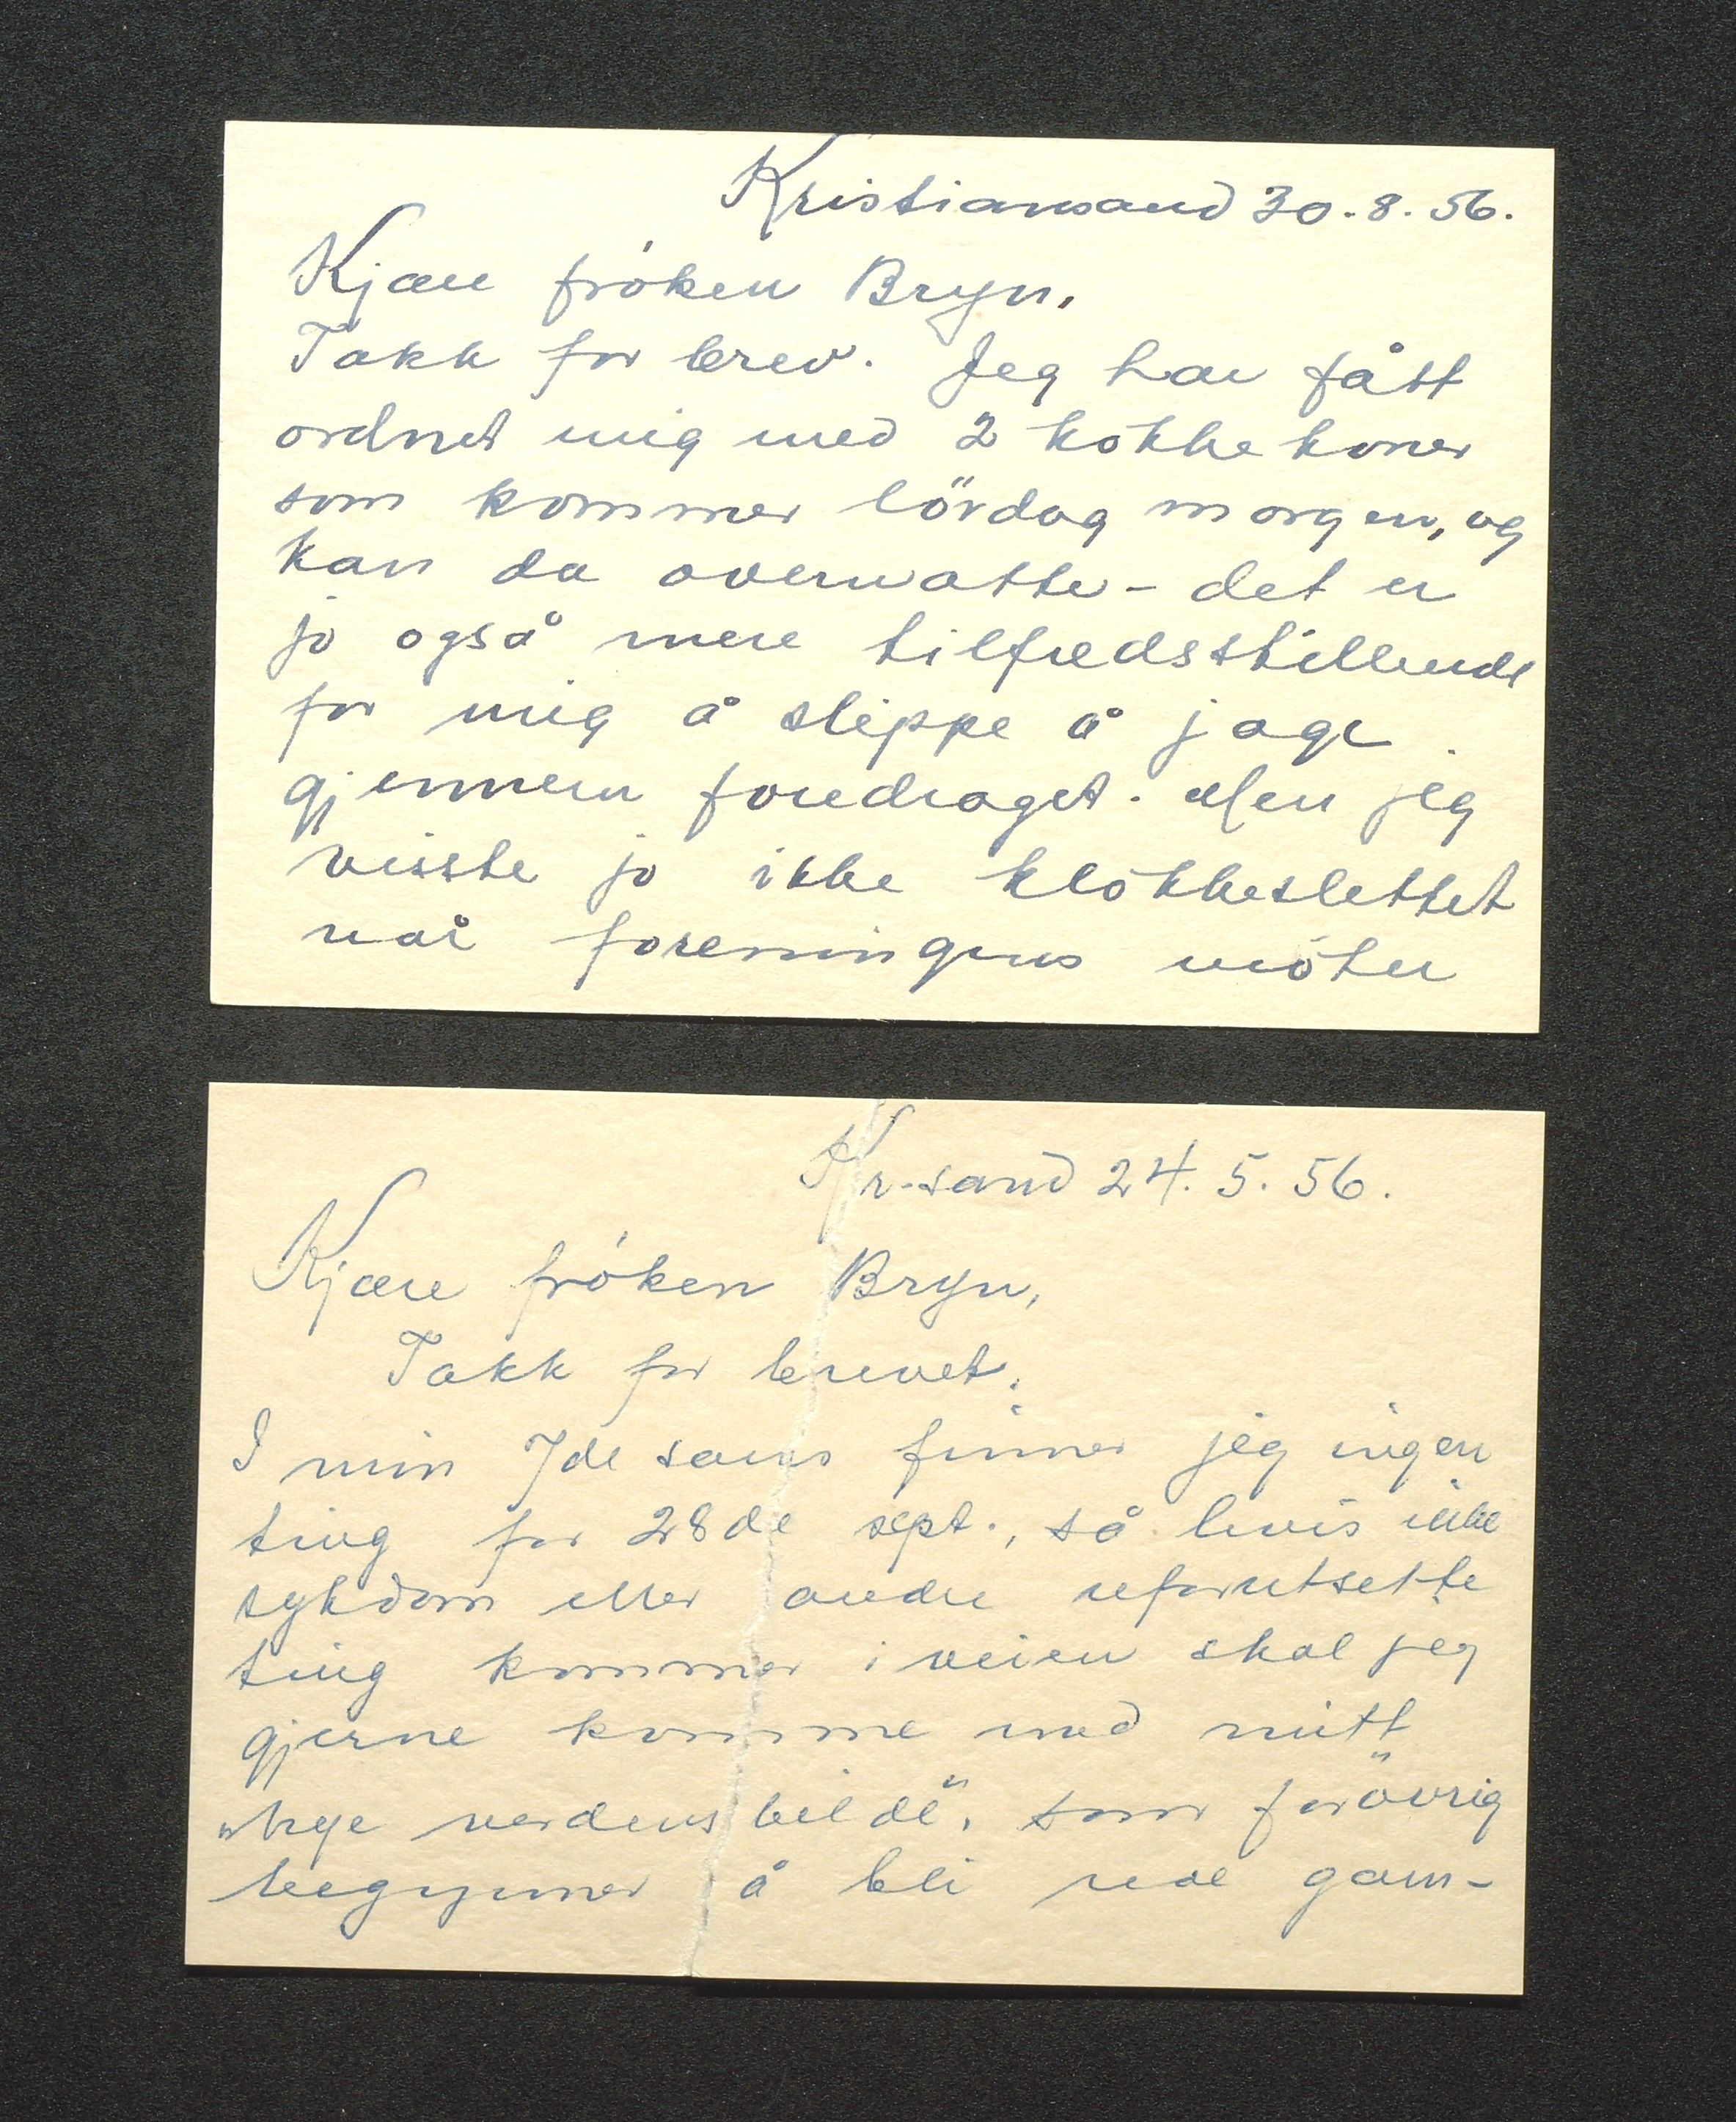 Kristiansand 30.8.56.
Kjære fröken Bryn.
Takk for brev. Jeg har fått
ordnet mig med 2 kokkekoner
som kommer lördag morgen, og
kan da overnatte - det er
jo også mere tilfredsstillende
for mig å slippe å jage
gjennem foredraget. Men jeg
visste jo ikke klokkeslettet
når foreningens möter
Kr.sand 24.5.56.
Kjære fröken Bryn,
Takk for brevet.
I min 7de sans finner jeg ingen
ting for 28de sept., så hvis ikke
sykdom eller andre uforutsette
ting kommer i veien skal jeg
gjerne komme med mitt
"Nye verdensbilde", som forövrig
begynner å bli gam-